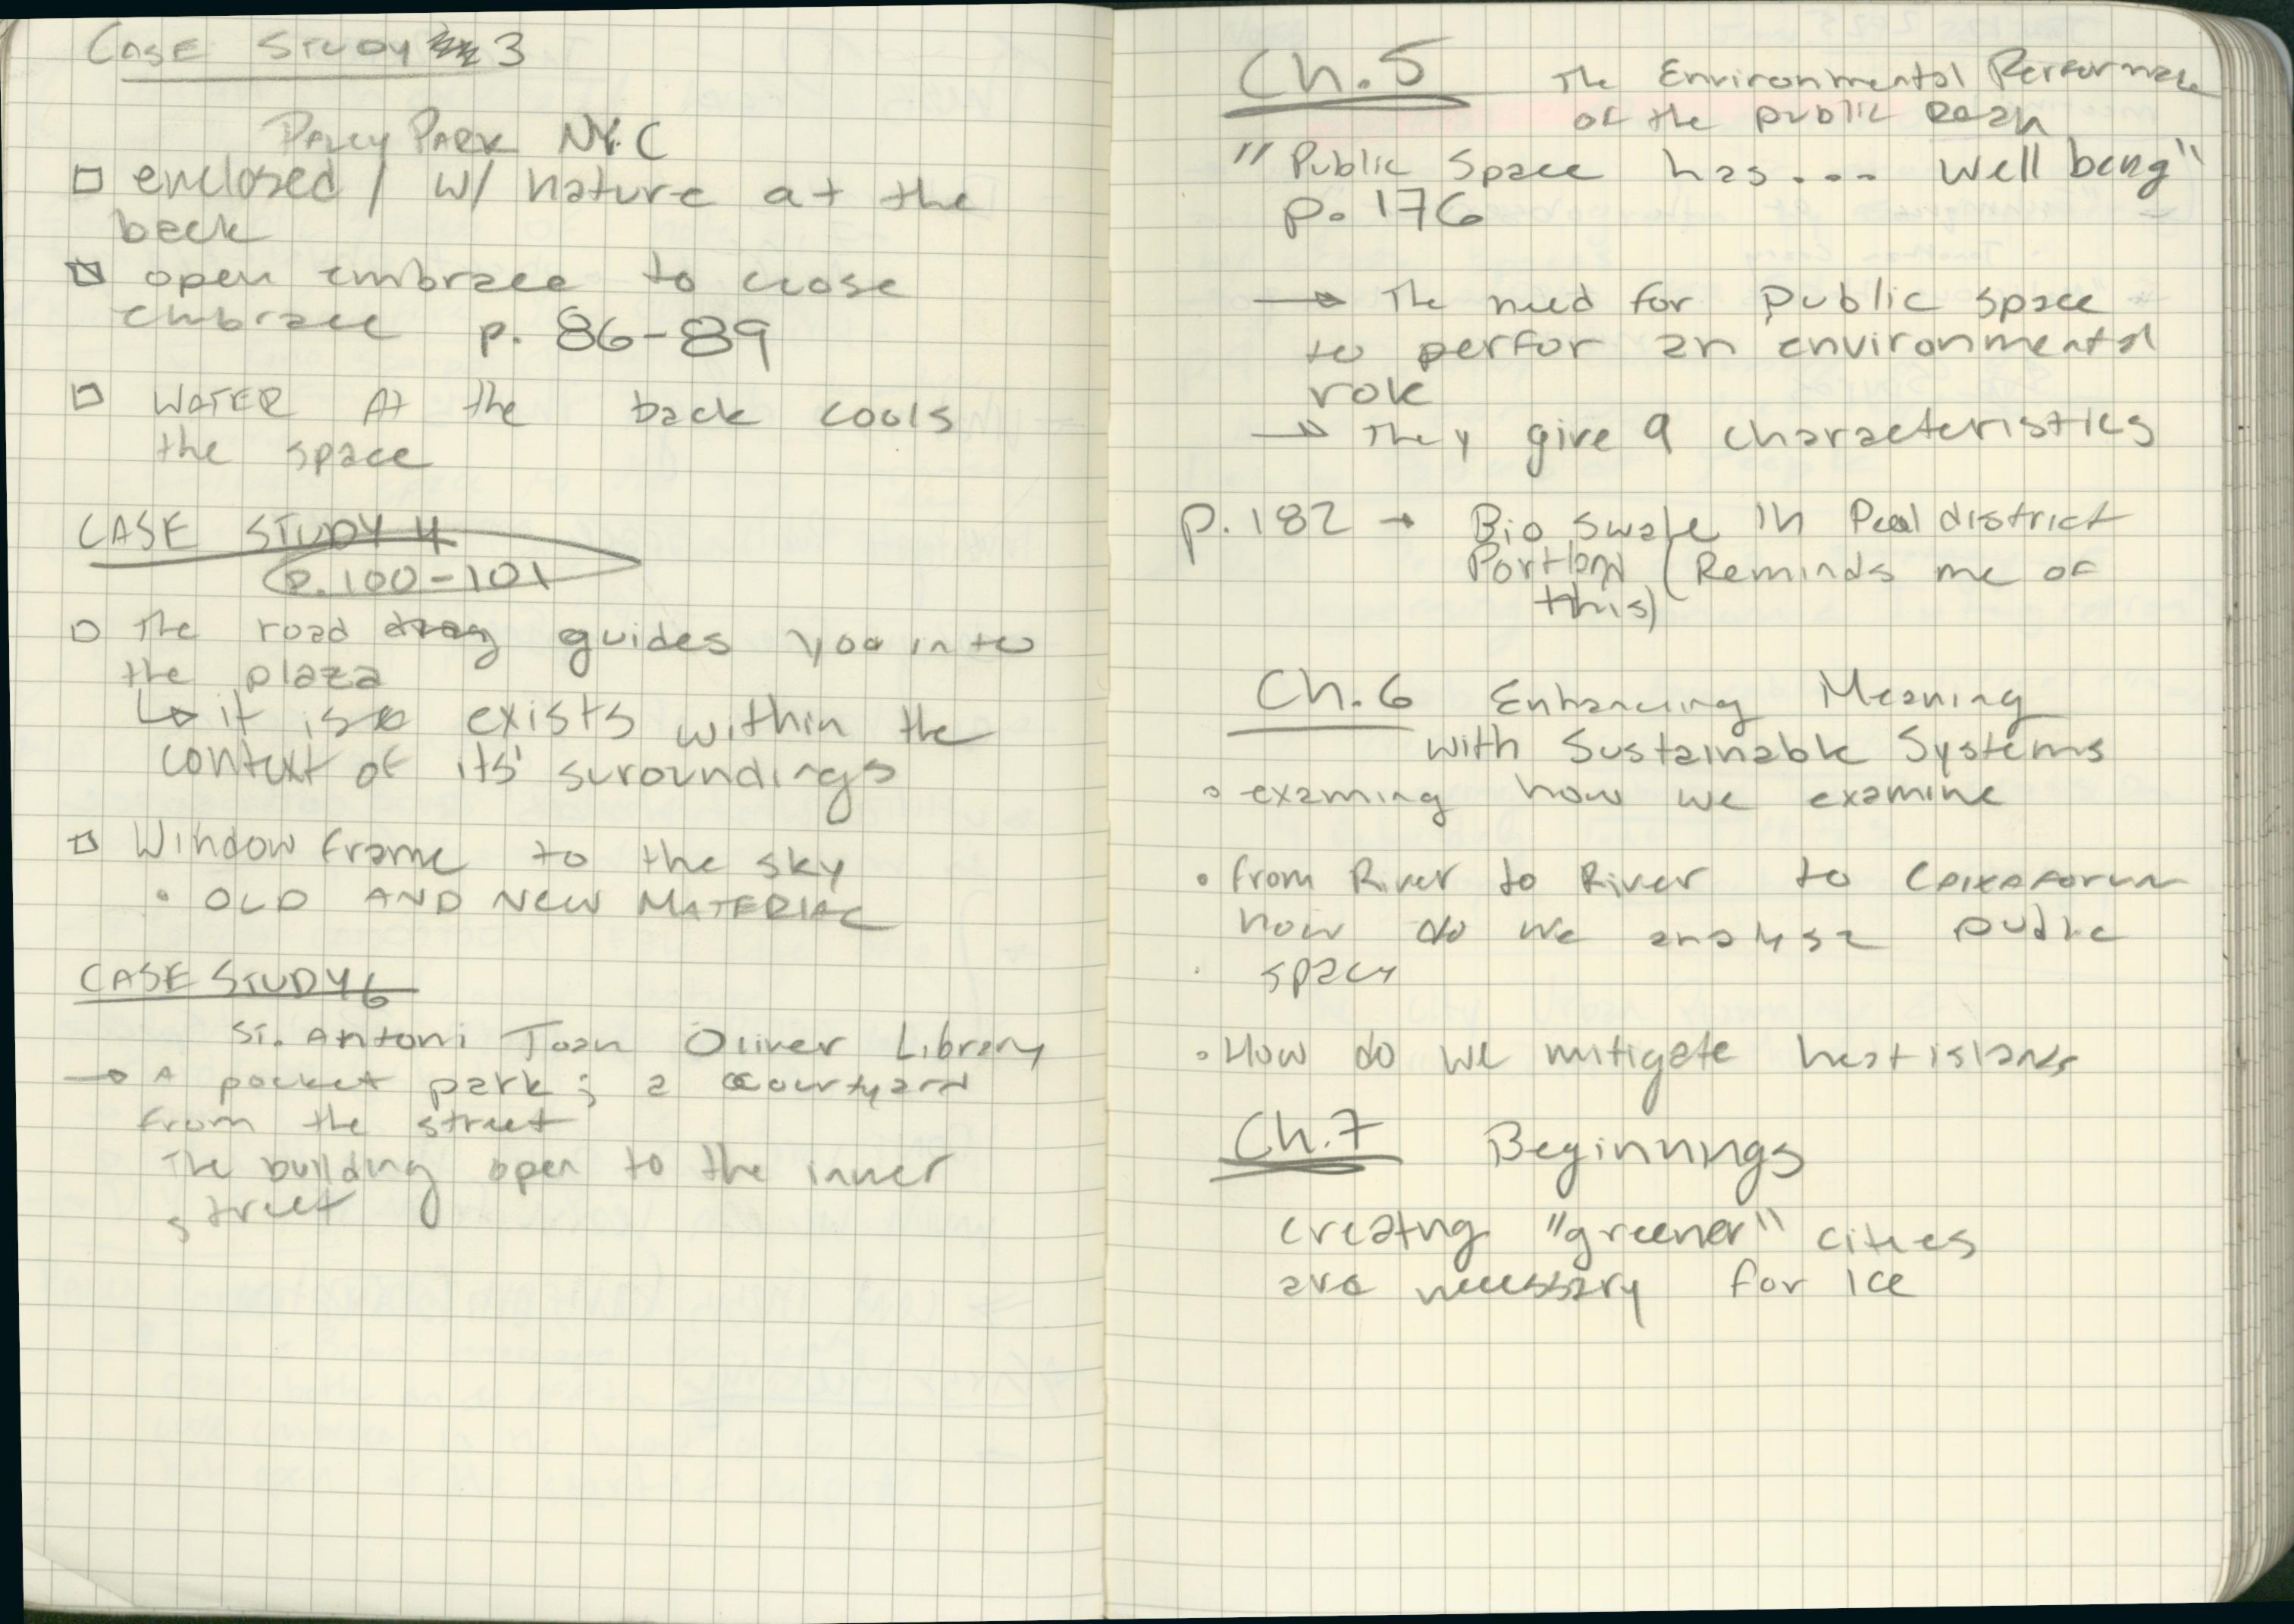 Case Study 3
Paley Park NYC
□ enclosed / w/ nature at the
back
□ open embrace to close
embrace p. 86-89
□ WATER At the back cools
the space
CASE STUDY 4
p. 100-101
□ The road guides you into
the plaza
↳ it is exists within the
context of its' suroundings
□ Window frame to the sky
• OLD AND NEW MATERIAL
CASE STUDY 6
St. Antoni Joan Oliver Library
→ A pocket park; a courtyard
from the street
The building open to the inner
street
Ch. 5 The Environmental Performance
of the public
"Public Space has... Well being"
p. 176
→ The need for public space
to perfor an environmental
role
→ They give 9 characteristics
p. 182 → Bio Swale in Pearl district
Portland (Reminds me of
this)
Ch. 6 Enhancing Meaning
with Sustainable Systems
• examing how we examine
• from River to River to Caixaforum
how do we analyse public
space
• How do we mitigate heat islands
Ch. 7 Beginnings
creating "greener" cities
are necessary for